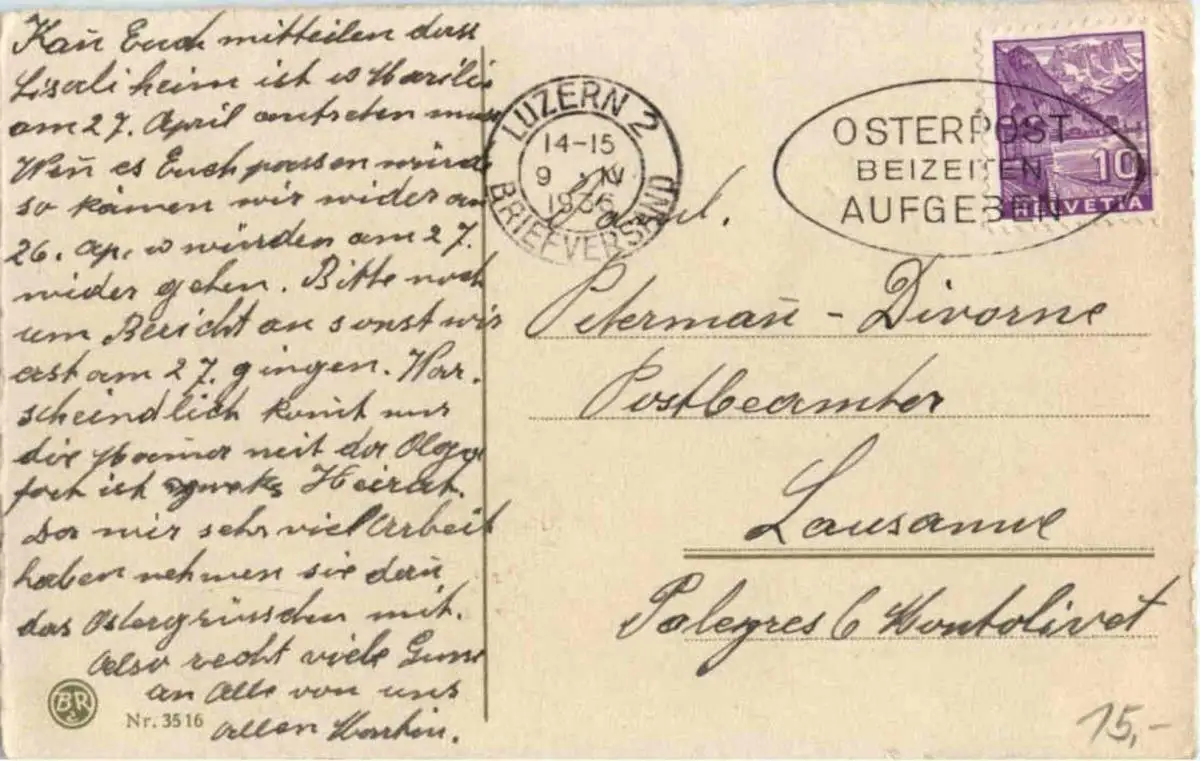 Kan̄ Euch mitteilen dass
Lisali heim ist
am 27. April antreten muss
Wen̄ es Euch passen würde
so kämen wir wider am
26. Ap. würden am 27.
wider gehen. Bitte noch
um Bericht an sonst wir
erst am 27. gingen. War.
scheindlich kom̄t nur
die mit der Olga
Heirat.
Da wir sehr viel Arbeit
haben nehmen sie dan̄
das Ostergrüsschen mit.
Also recht viele
an Alle von uns
allen
BR
Nr. 3516
LUZERN 2
14-15
9. IV
1936
BRIEFVERSAND
OSTERPOST
BEIZEITEN
AUFGEBEN
10
HELVETIA
Peterman̄ - Divorne
Postbeamter
Lausanne
Montolivet
15,-